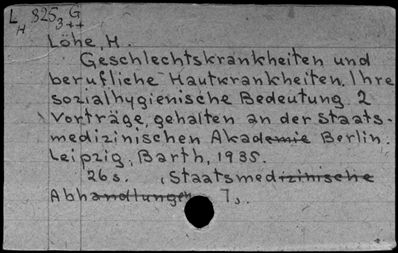 L 825, G
H 3++
Löhe, H.
Geschlechtskrankheiten und
berufliche Hautkrankheiten. Ihre
sozialhygienische Bedeutung. 2
Vorträge, gehalten an der Staats-
medizinischen Akademie Berlin.
Leipzig, Barth, 1935.
26s. (Staatsmedizinische
Abhandlungen 7).